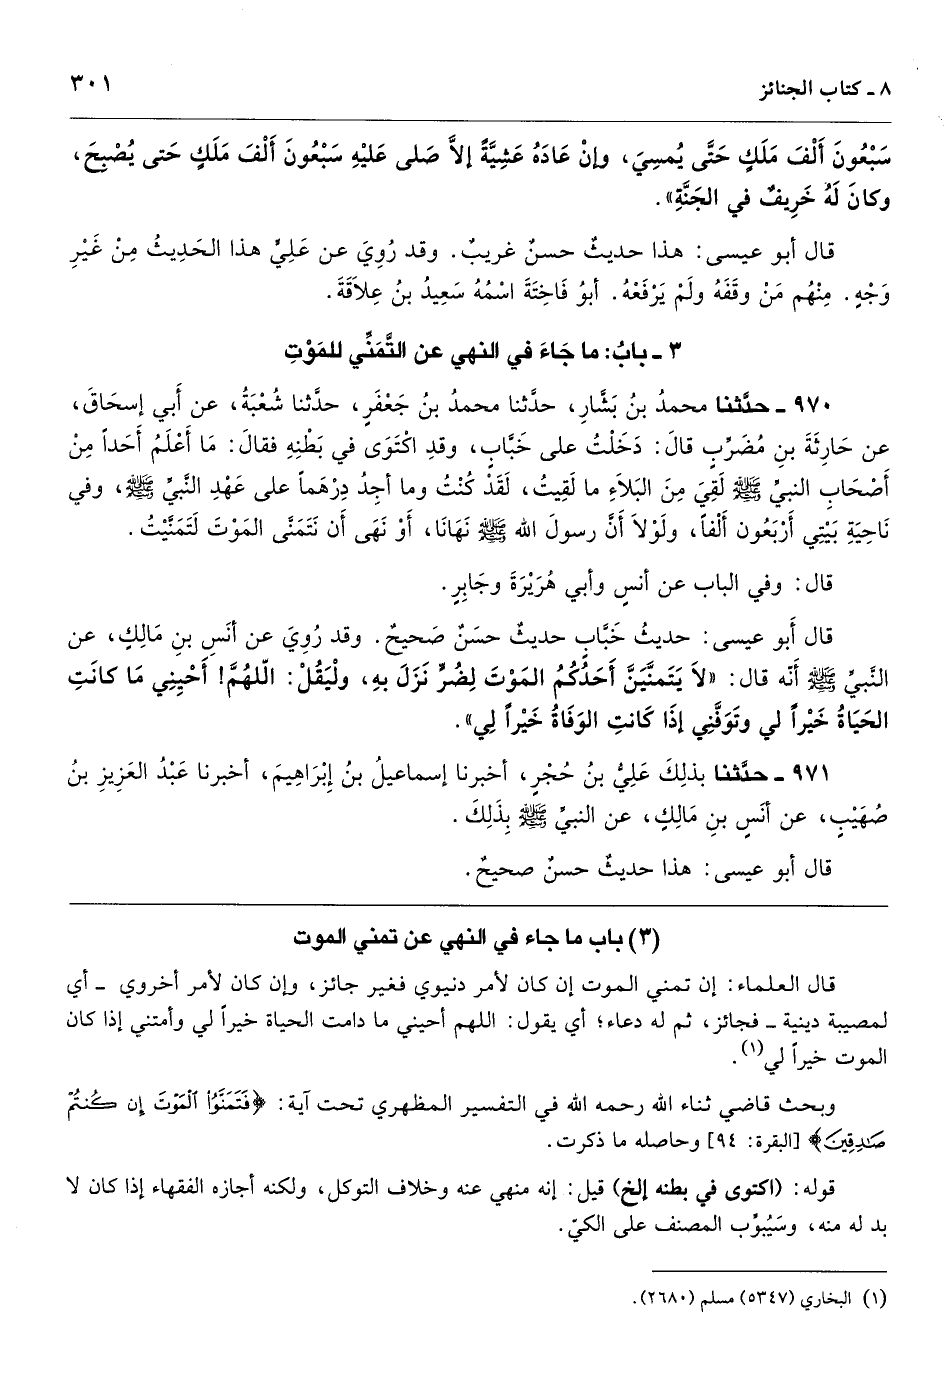 ٨ ـ كتاب الجنائز
٣٠١
سَبْعُونَ أَلْفَ مَلَكٍ حَتَّى يُمسِيَ، وإنْ عَادَهُ عَشِيَّةً إلاَّ صَلى عَليْهِ سَبْعُونَ أَلْفَ مَلَكٍ حَتى يُصْبِحَ،
وكانَ لَهُ خَرِيفٌ في الجَنَّةِ».
قال أبو عيسى: هذا حديثٌ حسنٌ غريبٌ. وقد رُوِيَ عن عَلِيٍّ هذا الحَدِيثُ مِنْ غَيْرِ
وَجْهٍ. مِنْهُم مَنْ وقَفَهُ ولَمْ يَرْفَعْهُ. أبوُ فَاخِتَةَ اسْمُهُ سَعِيدُ بنُ عِلاَقَةَ.
٣ ـ بابُ: ما جَاءَ في النهي عن التَّمَنِّي للمَوْتِ
٩٧٠ ـ حدَّثنا محمدُ بنُ بَشَّارٍ، حدَّثنا محمدُ بنُ جَعْفَرٍ، حدَّثنا شُعْبَةُ، عن أَبي إسحَاقَ،
عن حَارِثَةَ بنِ مُضَرِّبٍ قالَ: دَخَلْتُ على خَبَّابٍ، وقدِ اكْتَوَى في بَطْنِهِ فقالَ: مَا أَعْلَمُ أَحَداً مِنْ
أَصْحَابِ النبيِّ ﷺ لَقِيَ مِنَ البَلاَءِ ما لَقِيتُ، لَقَدْ كُنْتُ وما أجِدُ دِرْهَماً على عَهْدِ النَّبيِّ ﷺ، وفي
نَاحِيَةِ بَيْتِي أَرْبَعُون أَلْفاً، ولَوْلاَ أَنَّ رسولَ الله ﷺ نَهَانَا، أَوْ نَهَى أَن نَتَمَنَّى المَوْتَ لَتَمَنَّيْتُ.
قال: وفي الباب عن أنسٍ وأبي هُرَيْرَةَ وجَابِرٍ.
قال أَبو عيسى: حديثُ خَبَّابٍ حديثٌ حسَنٌ صَحيحٌ. وقد رُوِيَ عن أنَسِ بنِ مَالِكٍ، عن
النَّبيِّ ﷺ أنّه قال: «لاَ يَتَمنَّيَنَّ أَحَدُكُمُ المَوْتَ لِضُرٍّ نَزَلَ بهِ، ولْيَقُلْ: اللّهُمَّ! أَحْيِنِي مَا كانَتِ
الحَيَاةُ خَيْراً لي وتَوَفَّنِي إذَا كَانتِ الوَفَاةُ خَيْراً لِي».
٩٧١ ـ حدَّثنا بذلِكَ عَلِيُّ بنُ حُجْرٍ، أخبرنا إسماعيلُ بنُ إبْرَاهِيمَ، أخبرنا عَبْدُ العَزيزِ بنُ
صُهَيْبٍ، عن أنَسِ بنِ مَالِكٍ، عن النبيِّ ﷺ بِذَلِكَ.
قال أبو عيسى: هذا حديثٌ حسنٌ صحيحٌ.
(٣) باب ما جاء في النهي عن تمني الموت
قال العلماء: إن تمني الموت إن كان لأمر دنيوي فغير جائز، وإن كان لأمر أخروي ـ أي
لمصيبة دينية ـ فجائز، ثم له دعاء؛ أي يقول: اللهم أحيني ما دامت الحياة خيراً لي وأمتني إذا كان
الموت خيراً لي(١).
وبحث قاضي ثناء الله رحمه الله في التفسير المظهري تحت آية: ﴿فَتَمَنَّوُا ٱلْمَوْتَ إِن كُنتُمْ
صَـٰدِقِينَ﴾ [البقرة: ٩٤] وحاصله ما ذكرت.
قوله: (اكتوى في بطنه إلخ) قيل: إنه منهي عنه وخلاف التوكل، ولكنه أجازه الفقهاء إذا كان لا
بد له منه، وسَيُبوِّب المصنف على الكيّ.
(١) البخاري (٥٣٤٧) مسلم (٢٦٨٠).